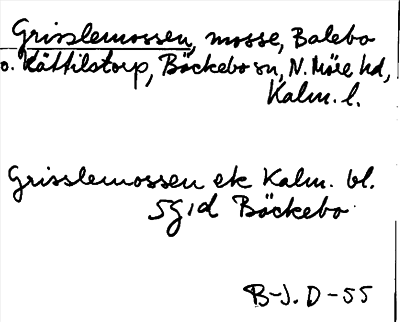 Grisslemossen, mosse, Balebo
o. Kättilstorp, Bäckebo sn, N. Möre hd,
Kalm. l.
Grisslemossen ek Kalm. bl.
5g1d Bäckebo
B-J. D-55